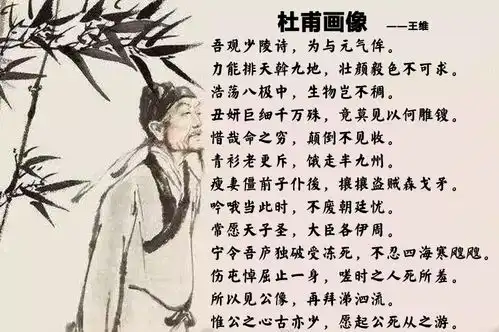 杜甫画像 ——王维
吾观少陵诗，为与元气侔。
力能排天斡九地，壮颜毅色不可求。
浩荡八极中，生物岂不稠。
丑妍巨细千万殊，竟莫见以何雕锼。
惜哉命之穷，颠倒不见收。
青衫老更斥，饿走半九州。
瘦妻僵前子仆後，攘攘盗贼森戈矛。
吟哦当此时，不废朝廷忧。
常愿天子圣，大臣各伊周。
宁令吾庐独破受冻死，不忍四海寒飕飕。
伤屯悼屈止一身，嗟时之人死所羞。
所以见公像，再拜涕泗流。
惟公之心古亦少，愿起公死从之游。